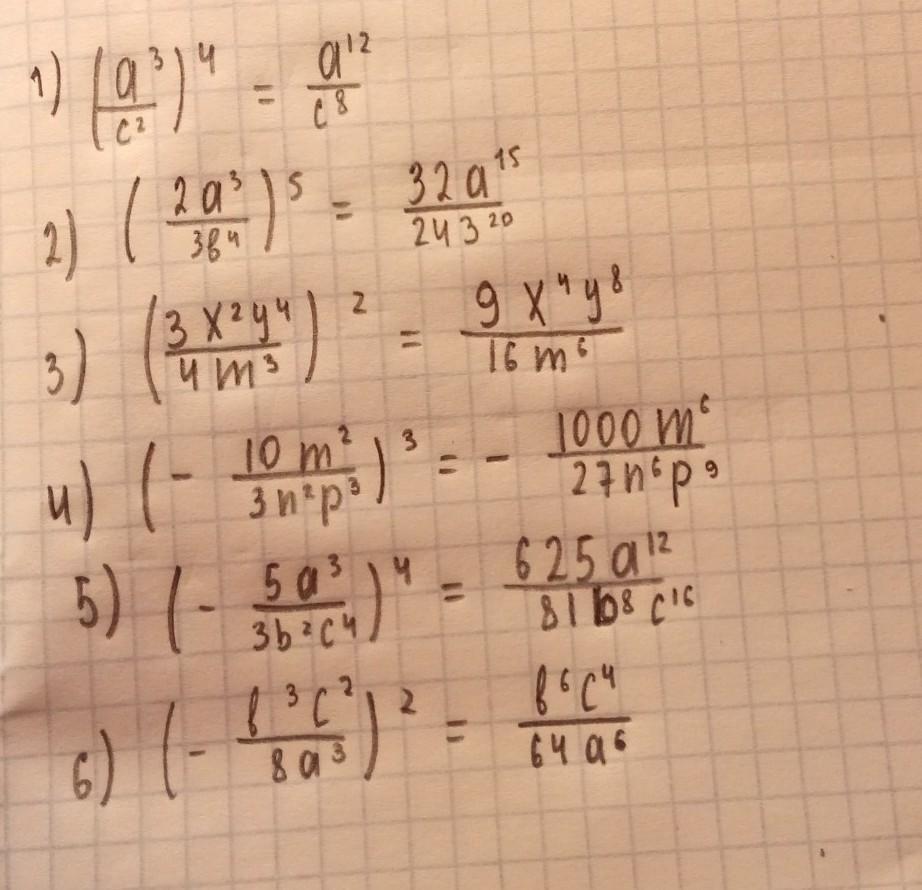 1) (a³/c²)⁴ = a¹²/c⁸
2) (2a³/3в⁴)⁵ = 32a¹⁵/243²⁰
3) (3x²y⁴/4m³)² = 9x⁴y⁸/16m⁶
4) (- 10m²/3n²p³)³ = - 1000m⁶/27n⁶p⁹
5) (- 5a³/3b²c⁴)⁴ = 625a¹²/81b⁸c¹⁶
6) (- в³c²/8a³)² = в⁶c⁴/64a⁶